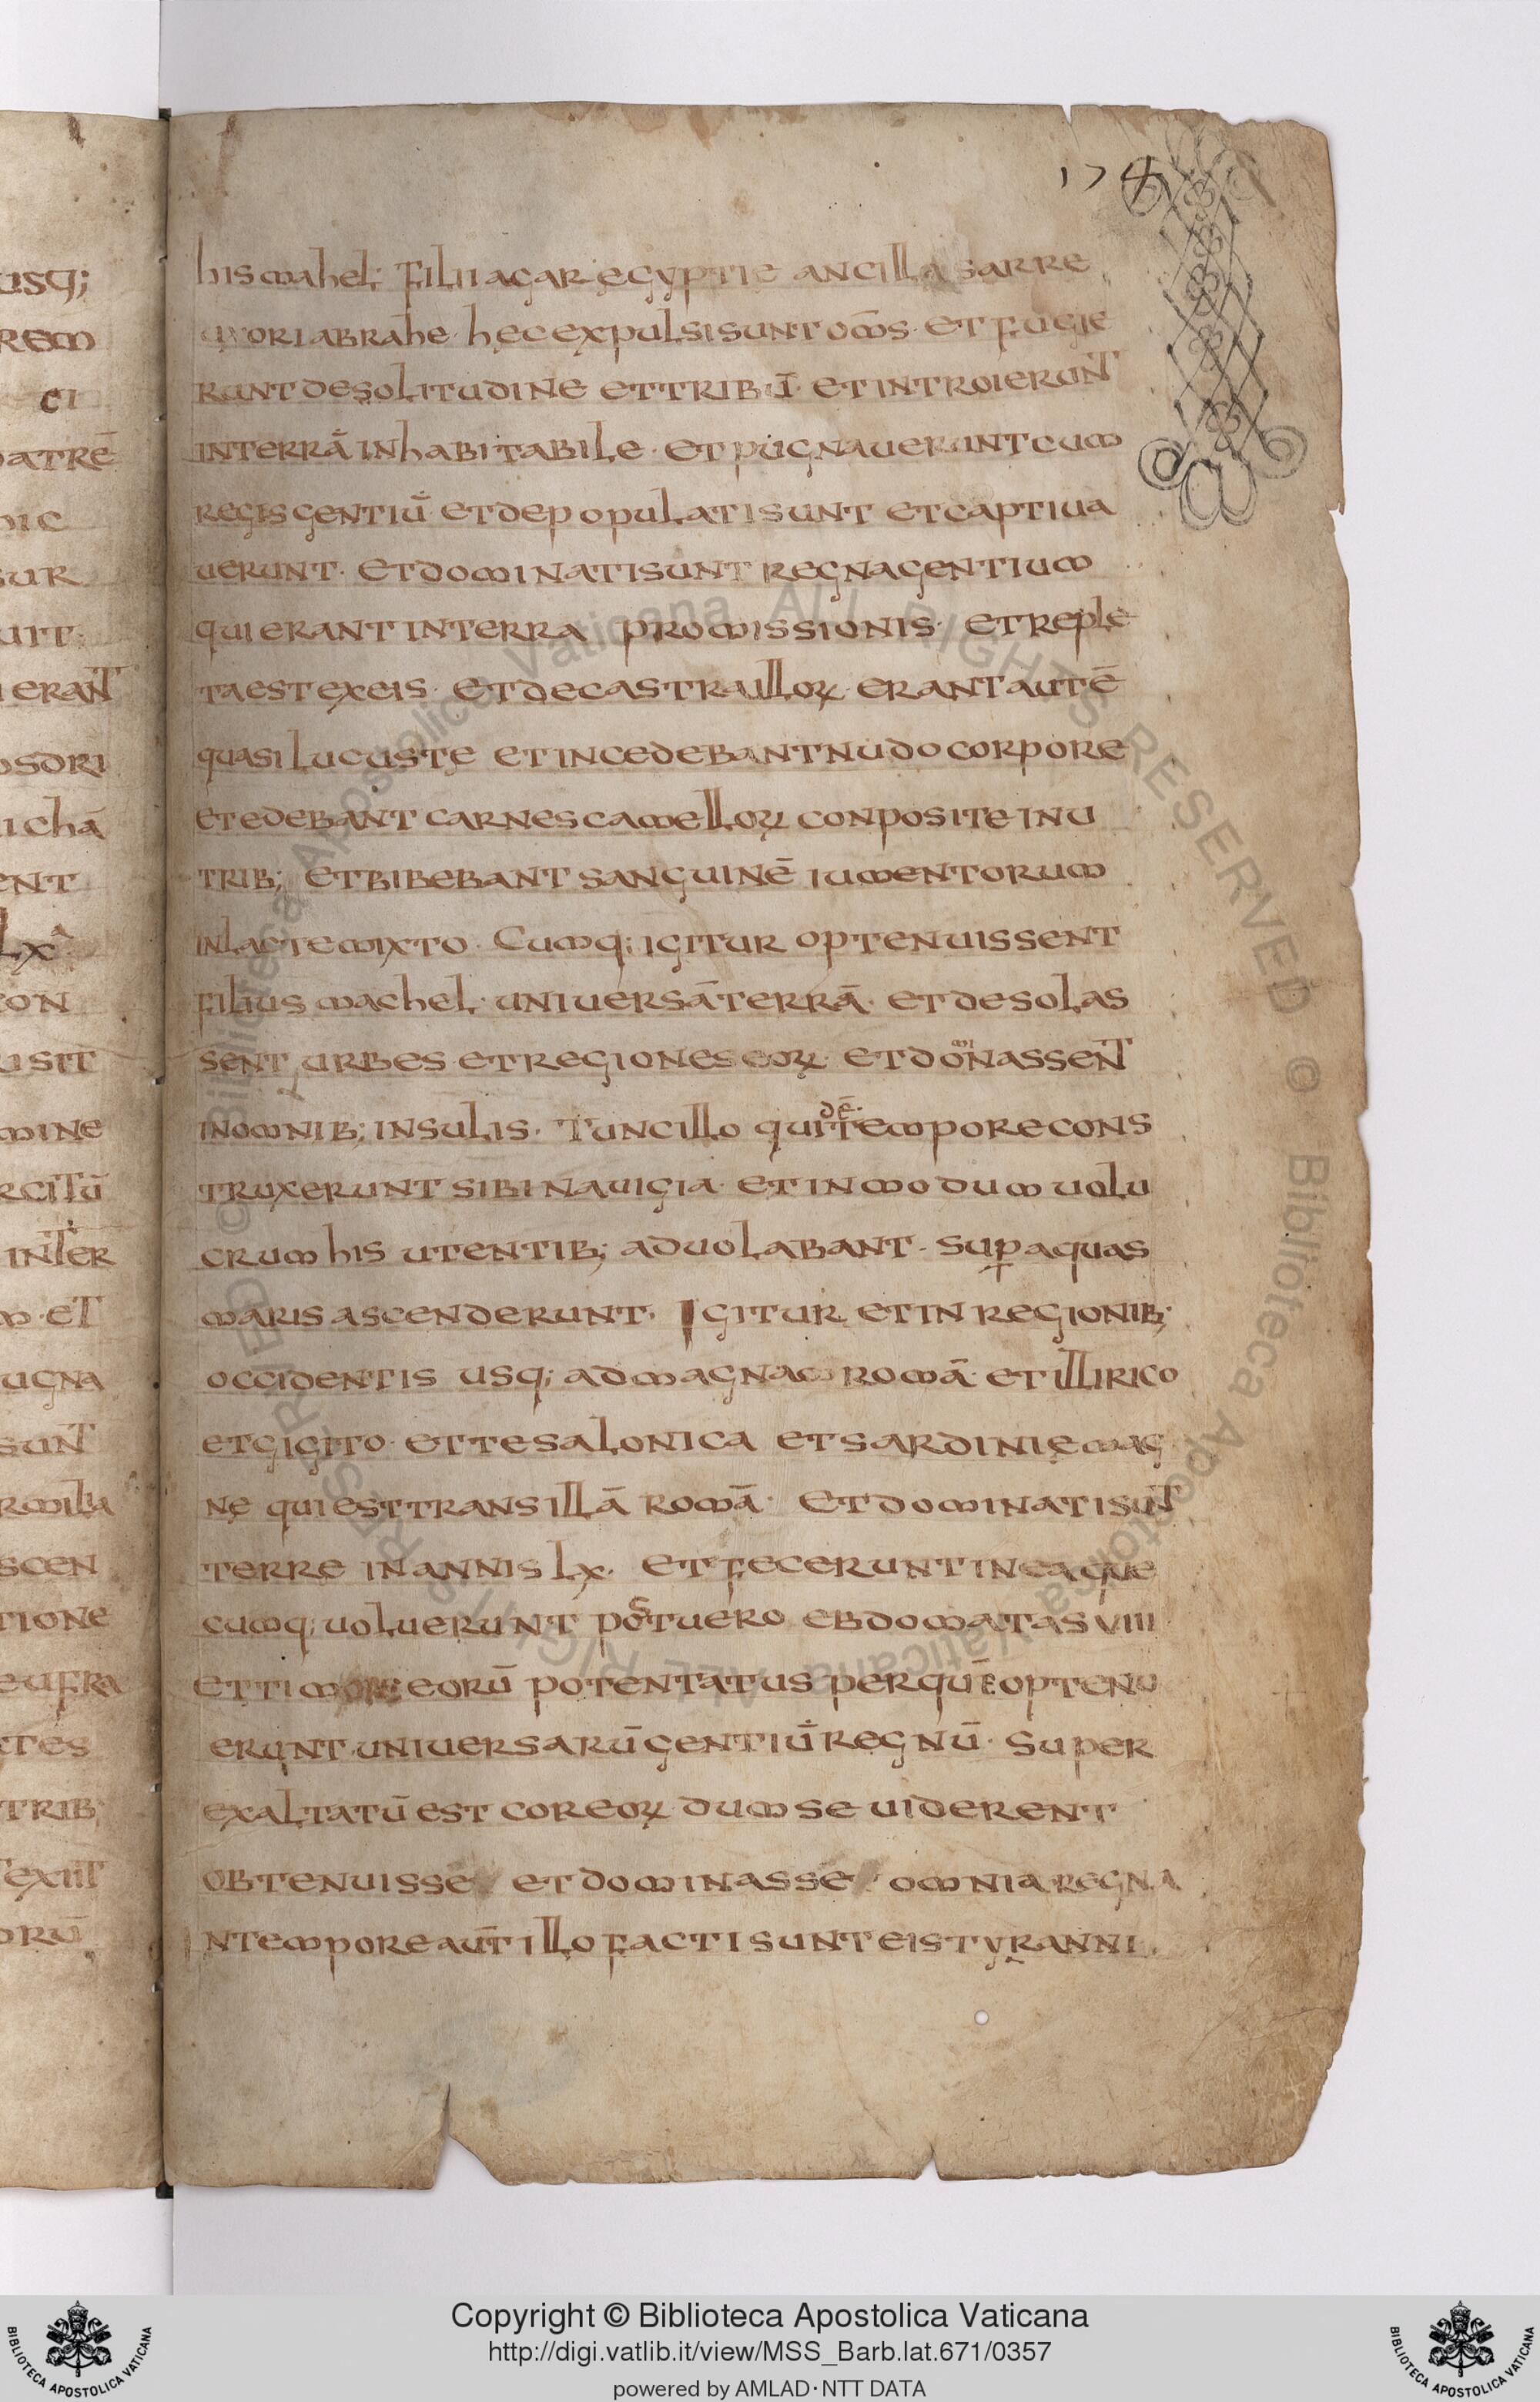 174
hismahel; filii agar egyptie ancilla sarre
uxori abrahe. hec expulsi sunt om̄s. et fugie
runt de solitudine et tribū. et introierunt
in terrā inhabitabile. et pugnauerunt cum
regis gentiū et depopulati sunt et captiua
uerunt. et dominati sunt regna gentium
qui erant in terra promissionis. et reple
ta est ex eis. et de castra illoꝝ. erant autē
quasi lucuste et incedebant nudo corpore
et edebant carnes camelloꝝ conposite in u
trib; et bibebant sanguinē iumentorum
in lacte mixto. Cumq; igitur optenuissent
filius machel. uniuersā terrā. et desolas
sent urbes et regiones eoꝝ. et dominassent
in omnib; insulis. Tunc illo quidē tempore cons
truxerunt sibi nauigia. et in modum uolu
crum his utentib; aduolabant. sup̱ aquas
maris ascenderunt. Igitur et in regionib;
occidentis usq; ad magnam romā. et illirico
et gigito. et tesalonica et sardinię mag
nę qui est trans illā romā. et dominati sunt
terre in annis lx. et fecerunt in ea que
cumq; uoluerunt post uero ebdomatas viiii
et timore eorū potentatus per quē optenu
erunt uniuersarū gentiū regnū. super
exaltatū est cor eoꝝ dum se uiderent
obtenuisse et dominasse omnia regna
In tempore aut̄ illo facti sunt eis tyranni.
usq;
rem
ci
patrē
hic
sur
uit.
erant
osdri
i chā
ent
lx
on
usit
mine
rcitū
inter
m. et
ugna
sunt
rmilia
scen
tione
eufra
tes
trib;
t exiit
orū
© Biblioteca Apostolica Vaticana ALL RIGHTS RESERVED © Biblioteca Apostolica Vaticana ALL RIGHTS RESERVED
Copyright © Biblioteca Apostolica Vaticana
http://digi.vatlib.it/view/MSS_Barb.lat.671/0357
powered by AMLAD·NTT DATA
BIBLIOTECA APOSTOLICA VATICANA
BIBLIOTECA APOSTOLICA VATICANA